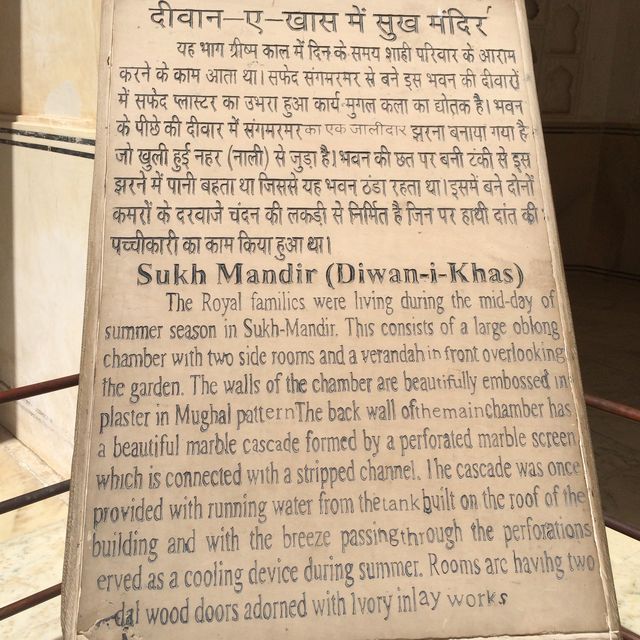 दीवान–ए–खास में सुख मंदिर
यह भाग ग्रीष्म काल में दिन के समय शाही परिवार के आराम
करने के काम आता था। सफेद संगमरमर से बने इस भवन की दीवारों
में सफेद प्लास्टर का उभरा हुआ कार्य मुगल कला का द्योतक है। भवन
के पीछे की दीवार में संगमरमर का एक जालीदार झरना बनाया गया है
जो खुली हुई नहर (नाली) से जुड़ा है। भवन की छत पर बनी टंकी से इस
झरने में पानी बहता था जिससे यह भवन ठंडा रहता था। इसमें बने दोनों
कमरों के दरवाजे चंदन की लकड़ी से निर्मित है जिन पर हाथी दांत की
पच्चीकारी का काम किया हुआ था।
Sukh Mandir (Diwan-i-Khas)
The Royal families were living during the mid-day of
summer season in Sukh-Mandir. This consists of a large oblong
chamber with two side rooms and a verandah in front overlooking
the garden. The walls of the chamber are beautifully embossed in
plaster in Mughal pattern The back wall of the main chamber has
a beautiful marble cascade formed by a perforated marble screen
which is connected with a stripped channel. The cascade was once
provided with running water from the tank built on the roof of the
building and with the breeze passing through the perforations
erved as a cooling device during summer. Rooms are having two
dal wood doors adorned with Ivory inlay works